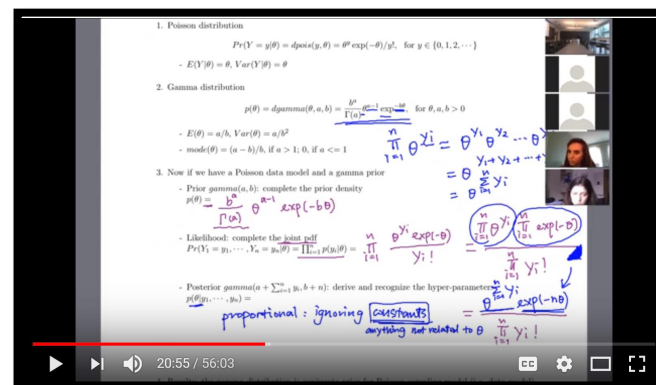 1. Poisson distribution
Pr(Y = y|θ) = dpois(y, θ) = θ^y exp(−θ)/y!, for y ∈ {0, 1, 2, ···}
- E(Y|θ) = θ, Var(Y|θ) = θ
2. Gamma distribution
p(θ) = dgamma(θ, a, b) = b^a/Γ(a) θ^(a−1) exp^(−bθ), for θ, a, b > 0
- E(θ) = a/b, Var(θ) = a/b²
∏_{i=1}^n θ^{yi} = θ^{y1} θ^{y2} ··· θ^y
- mode(θ) = (a − b)/b, if a > 1; 0, if a <= 1
= θ^{y1+y2+···+y}
= θ^{∑_{i=1}^n yi}
3. Now if we have a Poisson data model and a gamma prior
- Prior gamma(a, b): complete the prior density
p(θ) = b^a/Γ(a) θ^{a−1} exp(−bθ)
- Likelihood: complete the joint pdf
Pr(Y1 = y1, ···, Yn = yn|θ) = ∏_{i=1}^n p(yi|θ) = ∏_{i=1}^n θ^{yi} exp(−θ) / yi! = ∏_{i=1}^n θ^{yi} ∏_{i=1}^n exp(−θ) / ∏_{i=1}^n yi!
- Posterior gamma(a + ∑_{i=1}^n yi, b + n): derive and recognize the hyper-parameter
p(θ|y1, ···, yn) =
= θ^{∑_{i=1}^n yi} exp(−nθ) / ∏_{i=1}^n yi!
proportional : ignoring constants
anything not related to θ
20:55 / 56:03
CC